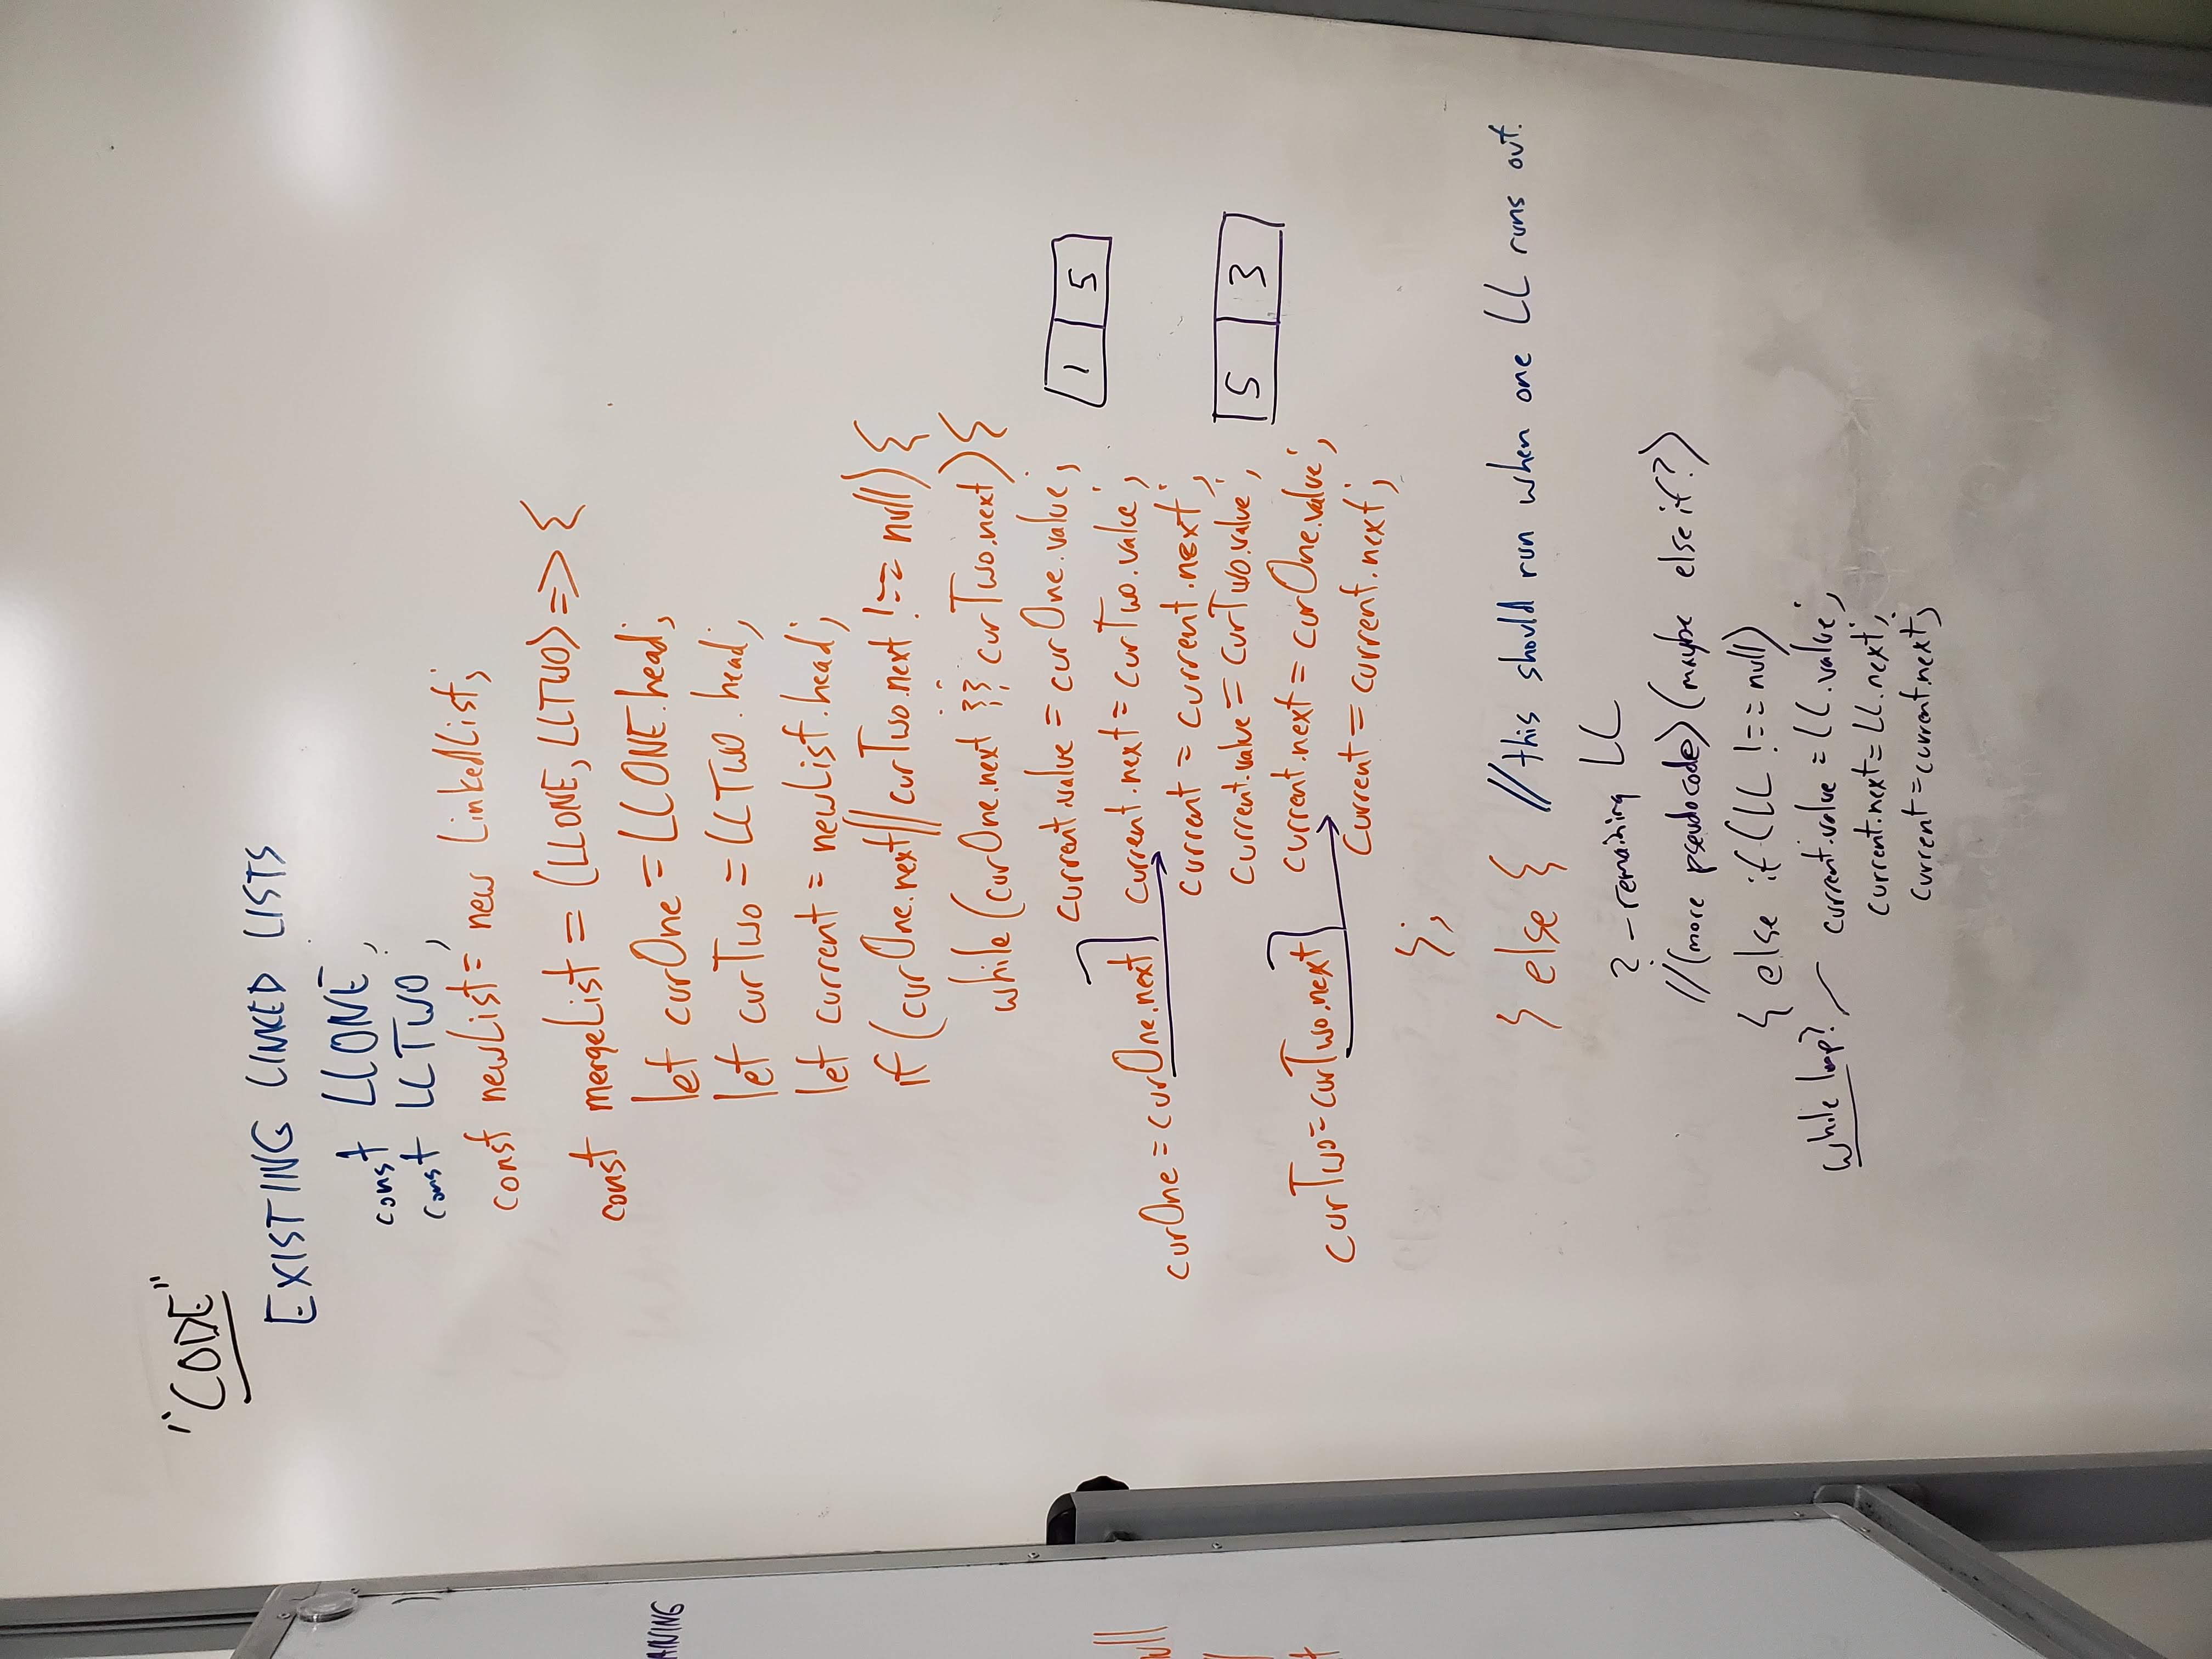 "CODE"
EXISTING LINKED LISTS
const LLONE;
const LLTWO;
const newList = new LinkedList;
const mergeList = (LLONE, LLTWO) => {
let curOne = LLONE.head;
let curTwo = LLTWO.head;
let current = newList.head;
if (curOne.next || curTwo.next !== null) {
while (curOne.next && curTwo.next) {
current.value = curOne.value;
1 5
curOne = curOne.next
current.next = curTwo.value;
current = current.next;
current.value = curTwo.value;
5 3
curTwo = curTwo.next
current.next = curOne.value;
Current = current.next;
};
} else { //this should run when one LL runs out.
? - remaining LL
//(more pseudocode) (maybe else if?)
{ else if (LL !== null)
while loop? current.value = LL.value;
current.next = LL.next;
current = current.next;
AINING
ull